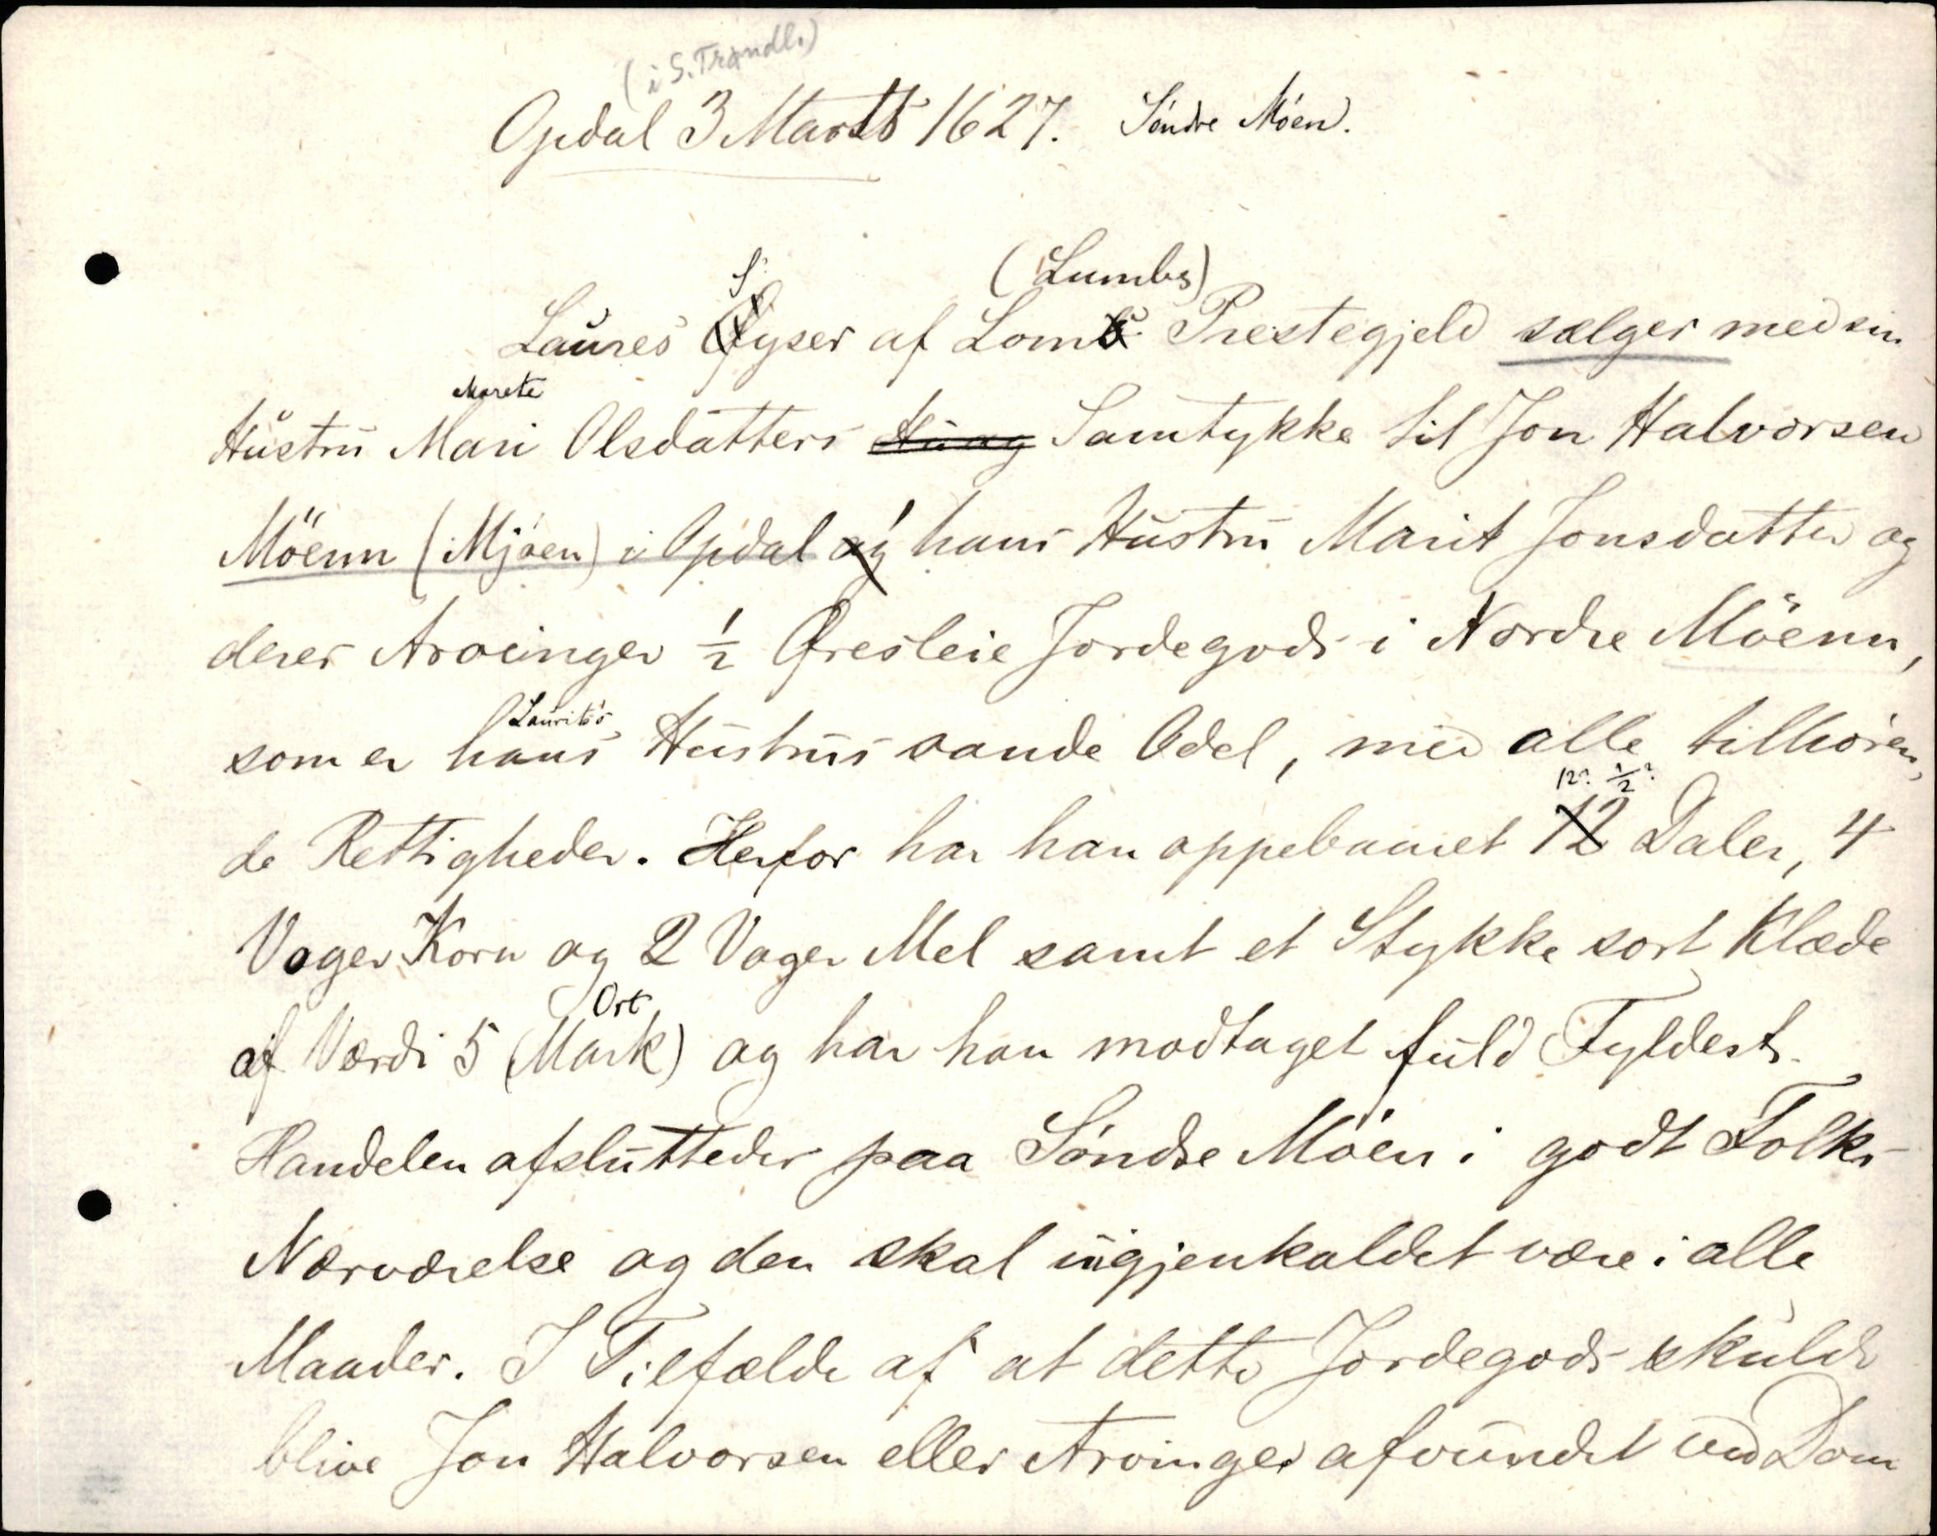 (i S. Trøndl.)
Opdal 3 Marts 1627. Søndre Möen.
S (Lumbs)
Laures Gyser af Lombs Prestegjeld sælger med sin
Marete
Hustru Mari Olsdatters Samtykke til Jon Halvorsen
Möenn (Mjøen) i Opdal og hans Hustru Marit Jonsdatter og
deres Arvinger ½ Øresleie Jordegods i Nordre Möenn,
Laurits's
som er hans Hustrus sande Odel, med alle tilhøren,
12? ½?
de Rettigheder. Herfor har han oppebaaret 12 Daler, 4
Voger Korn og 2 Voger Mel samt et Stykke sort Klæde
Ort
af Værdi 5 (Mark) og har han modtaget fuld Fyldest.
Handelen afsluttedes paa Søndre Möen i godt Folks
Nærværelse og den skal uigjenkaldet være i alle
Maader. I Tilfælde af at dette Jordegods skulde
blive Jon Halvorsen eller Arvinger afvundet ved Dom